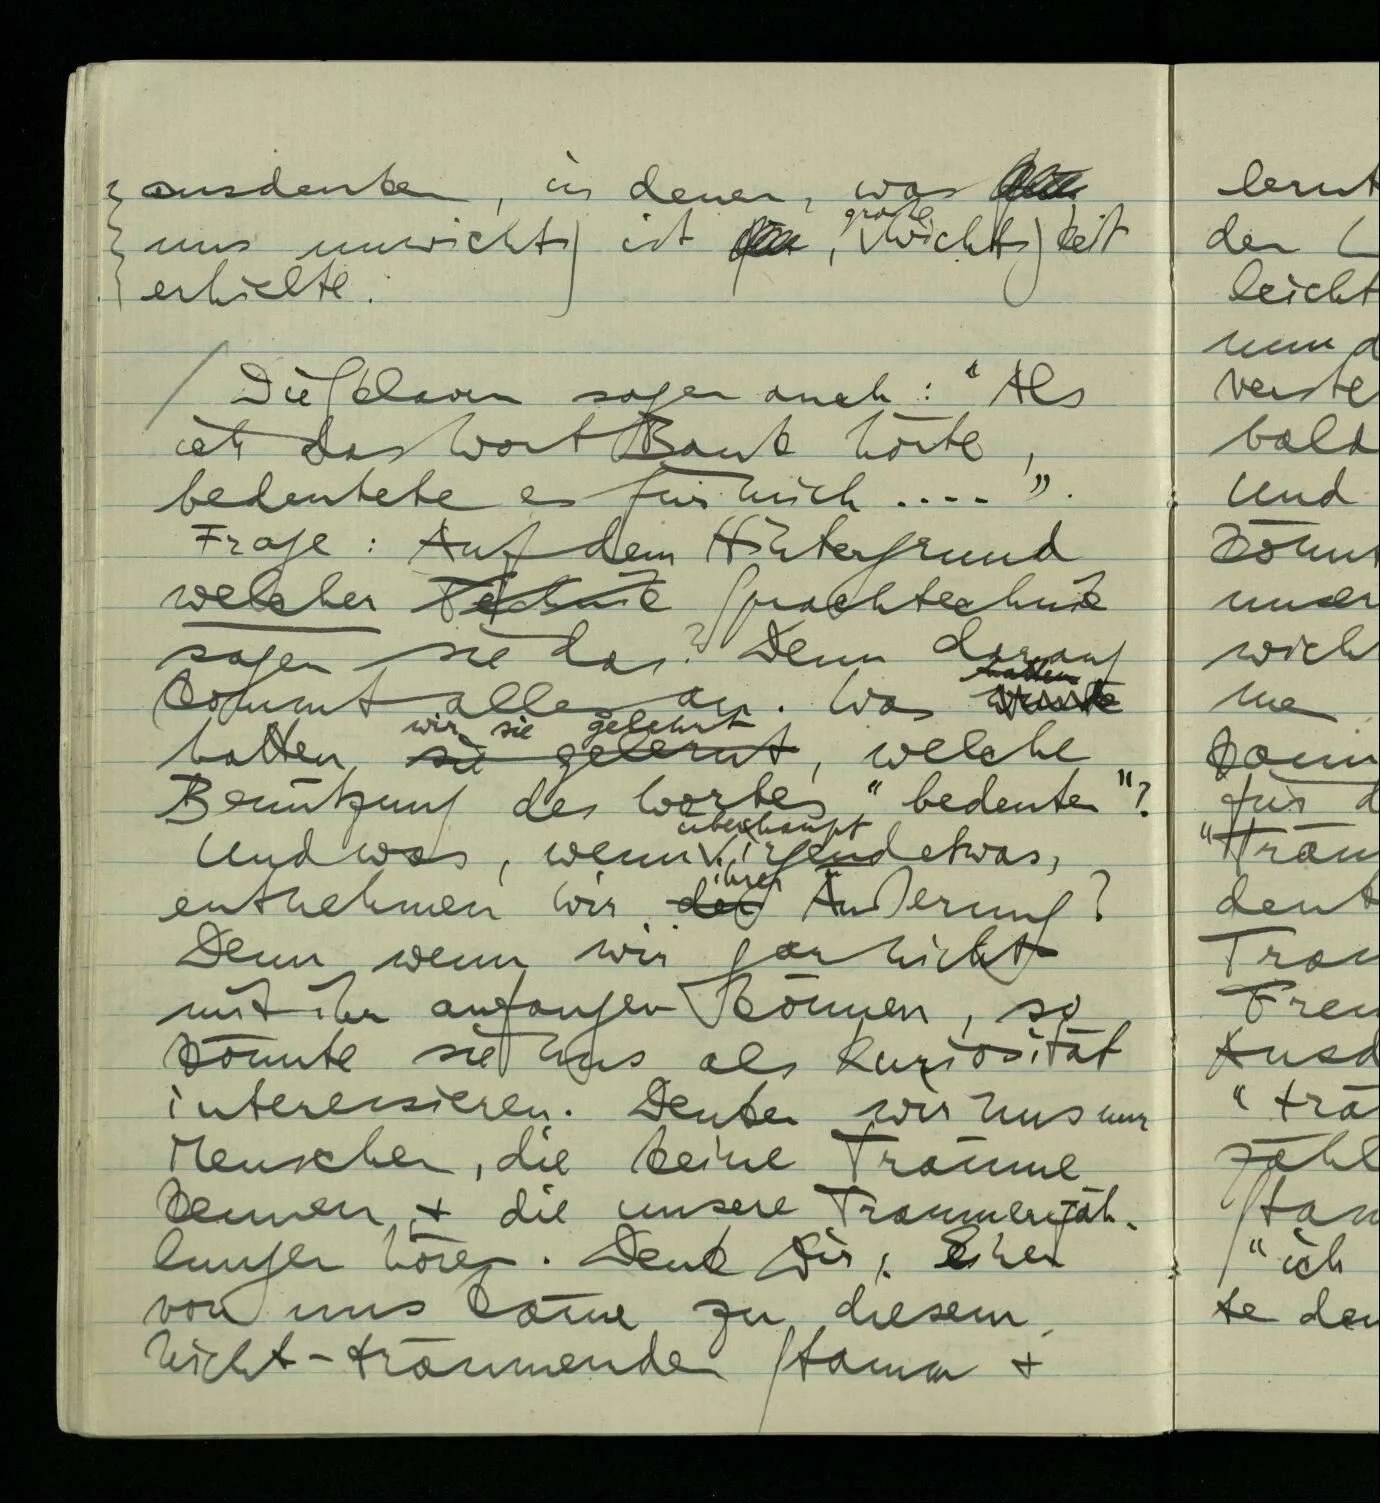 ausdenken, in denen, was
uns unwichtig ist, große Wichtigkeit
erhielte.
/ Die Sklaven sagen auch: "Als
ich das Wort Bank hörte,
bedeutete es für mich ....".
Frage: Auf dem Hintergrund
welcher Technik Sprachtechnik
sagen sie das? Denn darauf
kommt alles an. Was hatten wußte
hatten wir sie gelehrt sie gelernt, welche
Benützung des Wortes "bedeuten"?
Und was, wenn überhaupt irgend etwas,
entnehmen wir ihrer der Äußerung?
Denn wenn wir gar nichts
mit ihr anfangen können, so
könnte sie uns als Kuriosität
interessieren. Denken wir uns nur
Menschen, die keine Träume
kennen, + die unsere Traumerzäh-
lungen hören. Denk Dir, Einer
von uns käme zu diesem
nicht-träumenden Stamm +
lernt
den
leicht
und
verste
bald
Und
könnt
unser
wich
me
kann
für d
"Träum
deut
Trau
Frem
Ausd
"trä
zähl
Stam
"ich
te den